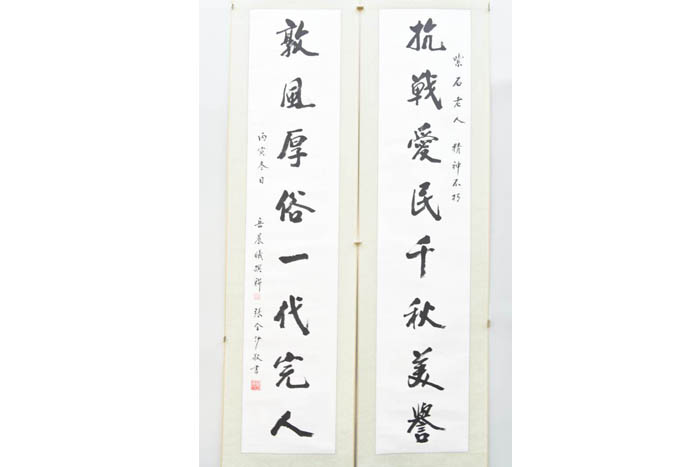 抗戰愛民千秋美譽
紫石老人 精神不朽
敦風厚俗一代完人
丙寅冬日 岳晨曦撰聯 張金沙敬書